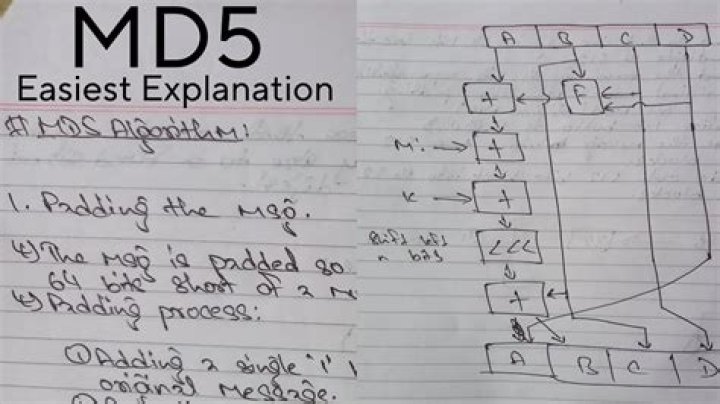 MD5
Easiest Explanation
# MD5 Algorithm:
1. Padding the Msg.
↳ The Msg is padded so
64 bits short of a M
↳ Padding process:
① Adding a single '1'
original Message.
A B C D
+ F
Mi +
K +
shifts bits
n bits <<<
+
A B C D